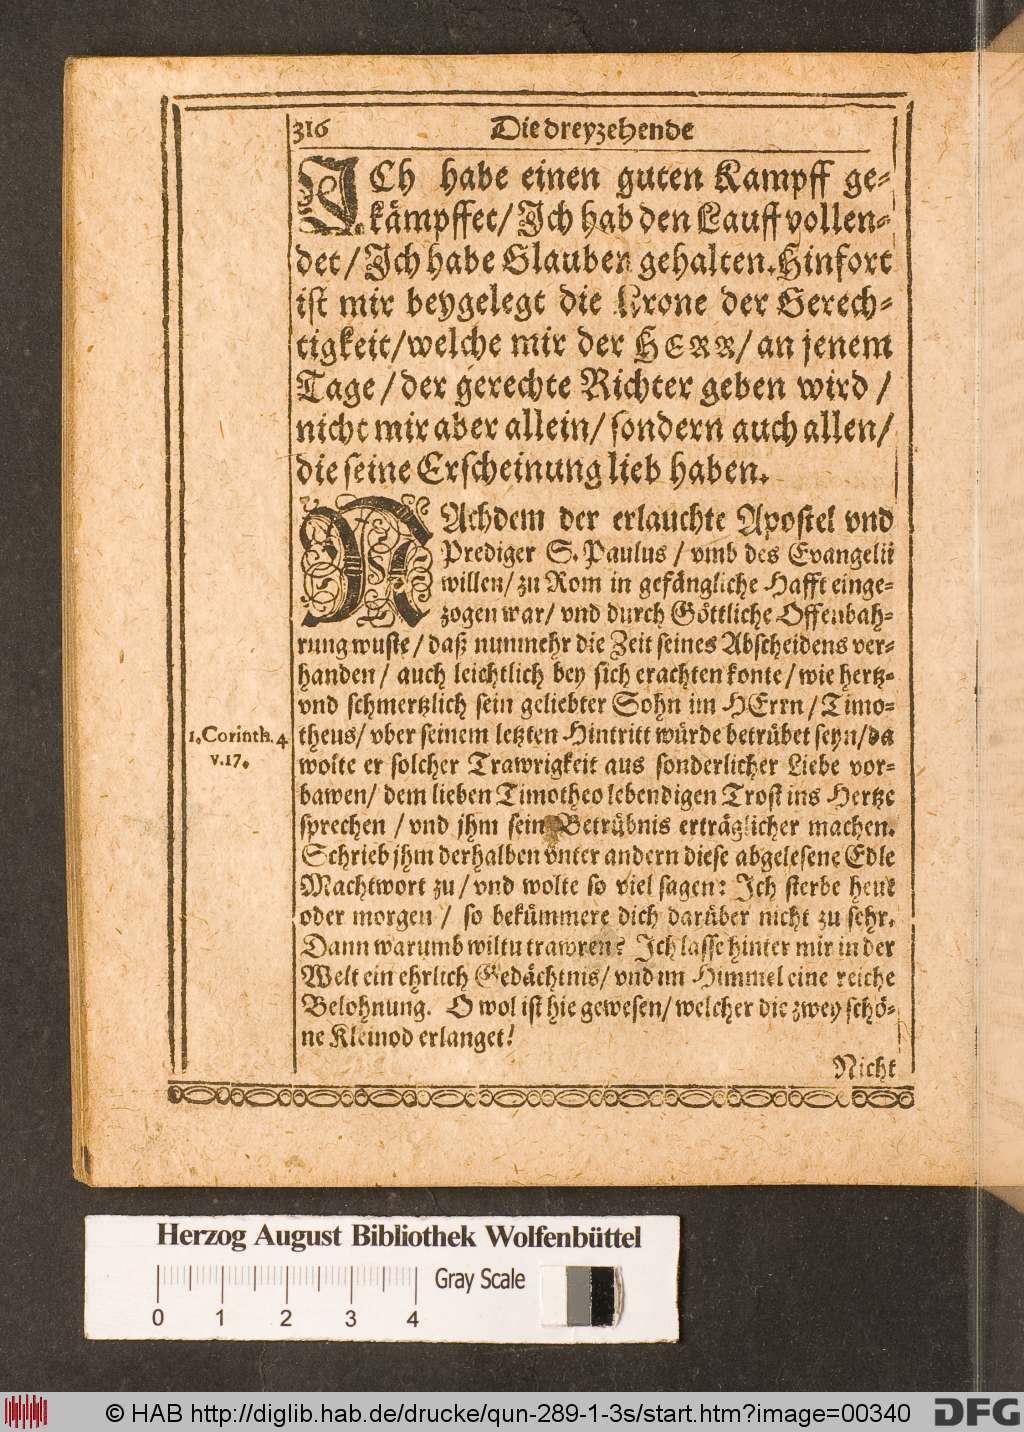 316 Die dreyzehende
ICh habe einen guten Kampff ge-
kämpffet/ Ich hab den Lauff vollen-
det/ Ich habe Glauben gehalten. Hinfort
ist mir beygelegt die Krone der Gerech-
tigkeit/ welche mir der HERR/ an jenem
Tage/ der gerechte Richter geben wird/
nicht mir aber allein/ sondern auch allen/
die seine Erscheinung lieb haben.
NAchdem der erlauchte Apostel vnd
Prediger S. Paulus/ vmb des Evangelii
willen/ zu Rom in gefängliche Hafft einge-
zogen war/ vnd durch Göttliche Offenbah-
rung wuste/ daß nunmehr die Zeit seines Abscheidens ver-
handen/ auch leichtlich bey sich erachten konte/ wie hertz-
vnd schmertzlich sein geliebter Sohn im HErrn/ Timo-
1. Corinth. 4
v. 17.
theus/ vber seinem letzten Hintritt würde betrübet seyn/ da
wolte er solcher Trawrigkeit aus sonderlicher Liebe vor-
bawen/ dem lieben Timotheo lebendigen Trost ins Hertze
sprechen/ vnd jhm sein Betrübnis erträglicher machen.
Schrieb jhm derhalben vnter andern diese abgelesene Edle
Machtwort zu/ vnd wolte so viel sagen: Ich sterbe heut
oder morgen/ so bekümmere dich darüber nicht zu sehr.
Dann warumb wiltu trawren? Ich lasse hinter mir in der
Welt ein ehrlich Gedächtnis/ vnd im Himmel eine reiche
Belohnung. O wol ist hie gewesen/ welcher die zwey schö-
ne Kleinod erlanget!
Nicht
Herzog August Bibliothek Wolfenbüttel
Gray Scale
0 1 2 3 4
© HAB http://diglib.hab.de/drucke/qun-289-1-3s/start.htm?image=00340
DFG